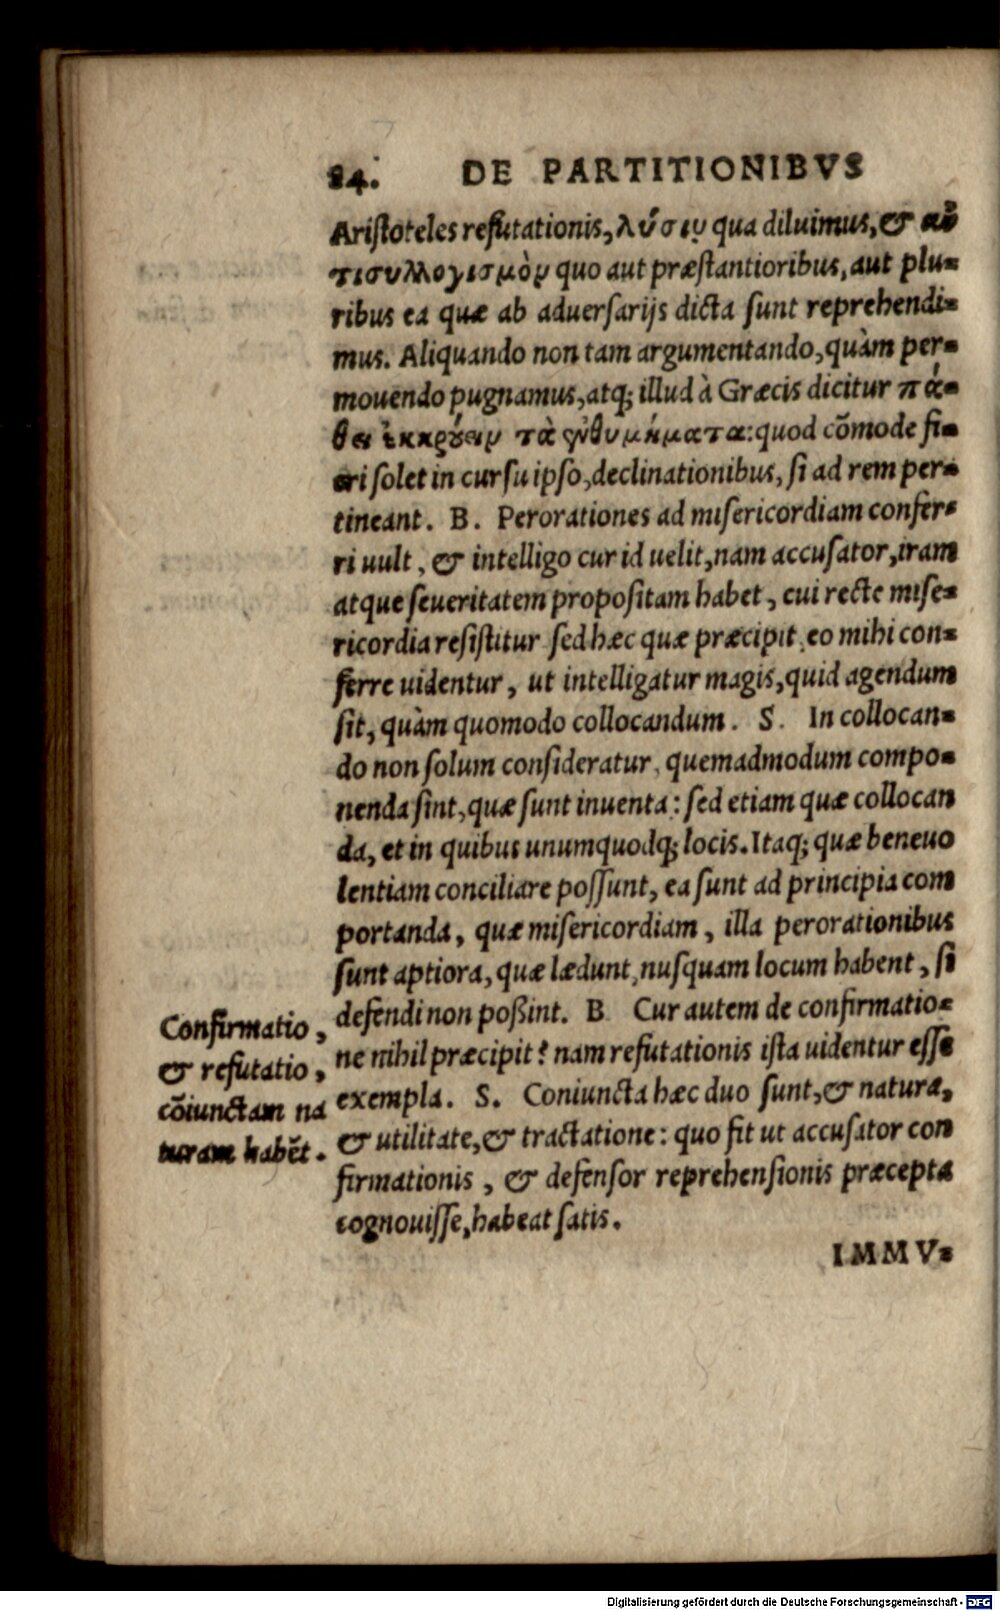 84. DE PARTITIONIBVS
Aristoteles refutationis, λύσιν qua diluimus, & ἀν
τισυλλογισμὸν quo aut præstantioribus, aut plu=
ribus ea quæ ab aduersarijs dicta sunt reprehendi=
mus. Aliquando non tam argumentando, quàm per=
mouendo pugnamus, atq; illud à Græcis dicitur πά=
θει ἐκκρούειν τὰ ἐνθυμήματα: quod cōmode fi=
eri solet in cursu ipso, declinationibus, si ad rem per=
tineant. B. Perorationes ad misericordiam confer=
ri uult, & intelligo cur id uelit, nam accusator, iram
atque seueritatem propositam habet, cui recte mise=
ricordia resistitur sed hæc quæ præcipit, eo mihi con=
ferre uidentur, ut intelligatur magis, quid agendum
sit, quàm quomodo collocandum. S. In collocan=
do non solum consideratur, quemadmodum compo=
nenda sint, quæ sunt inuenta: sed etiam quæ collocan
da, et in quibus unumquodq; locis. Itaq; quæ beneuo
lentiam conciliare possunt, ea sunt ad principia com
portanda, quæ misericordiam, illa perorationibus
sunt aptiora, quæ lædunt, nusquam locum habent, si
defendi non poßint. B Cur autem de confirmatio=
ne nihil præcipit? nam refutationis ista uidentur esse
exempla. S. Coniuncta hæc duo sunt, & natura,
& utilitate, & tractatione: quo fit ut accusator con
firmationis, & defensor reprehensionis præcepta
cognouisse, habeat satis.
Confirmatio,
& refutatio,
cōiunctam na
turam habēt.
IMMV=
Digitalisierung gefördert durch die Deutsche Forschungsgemeinschaft - DFG